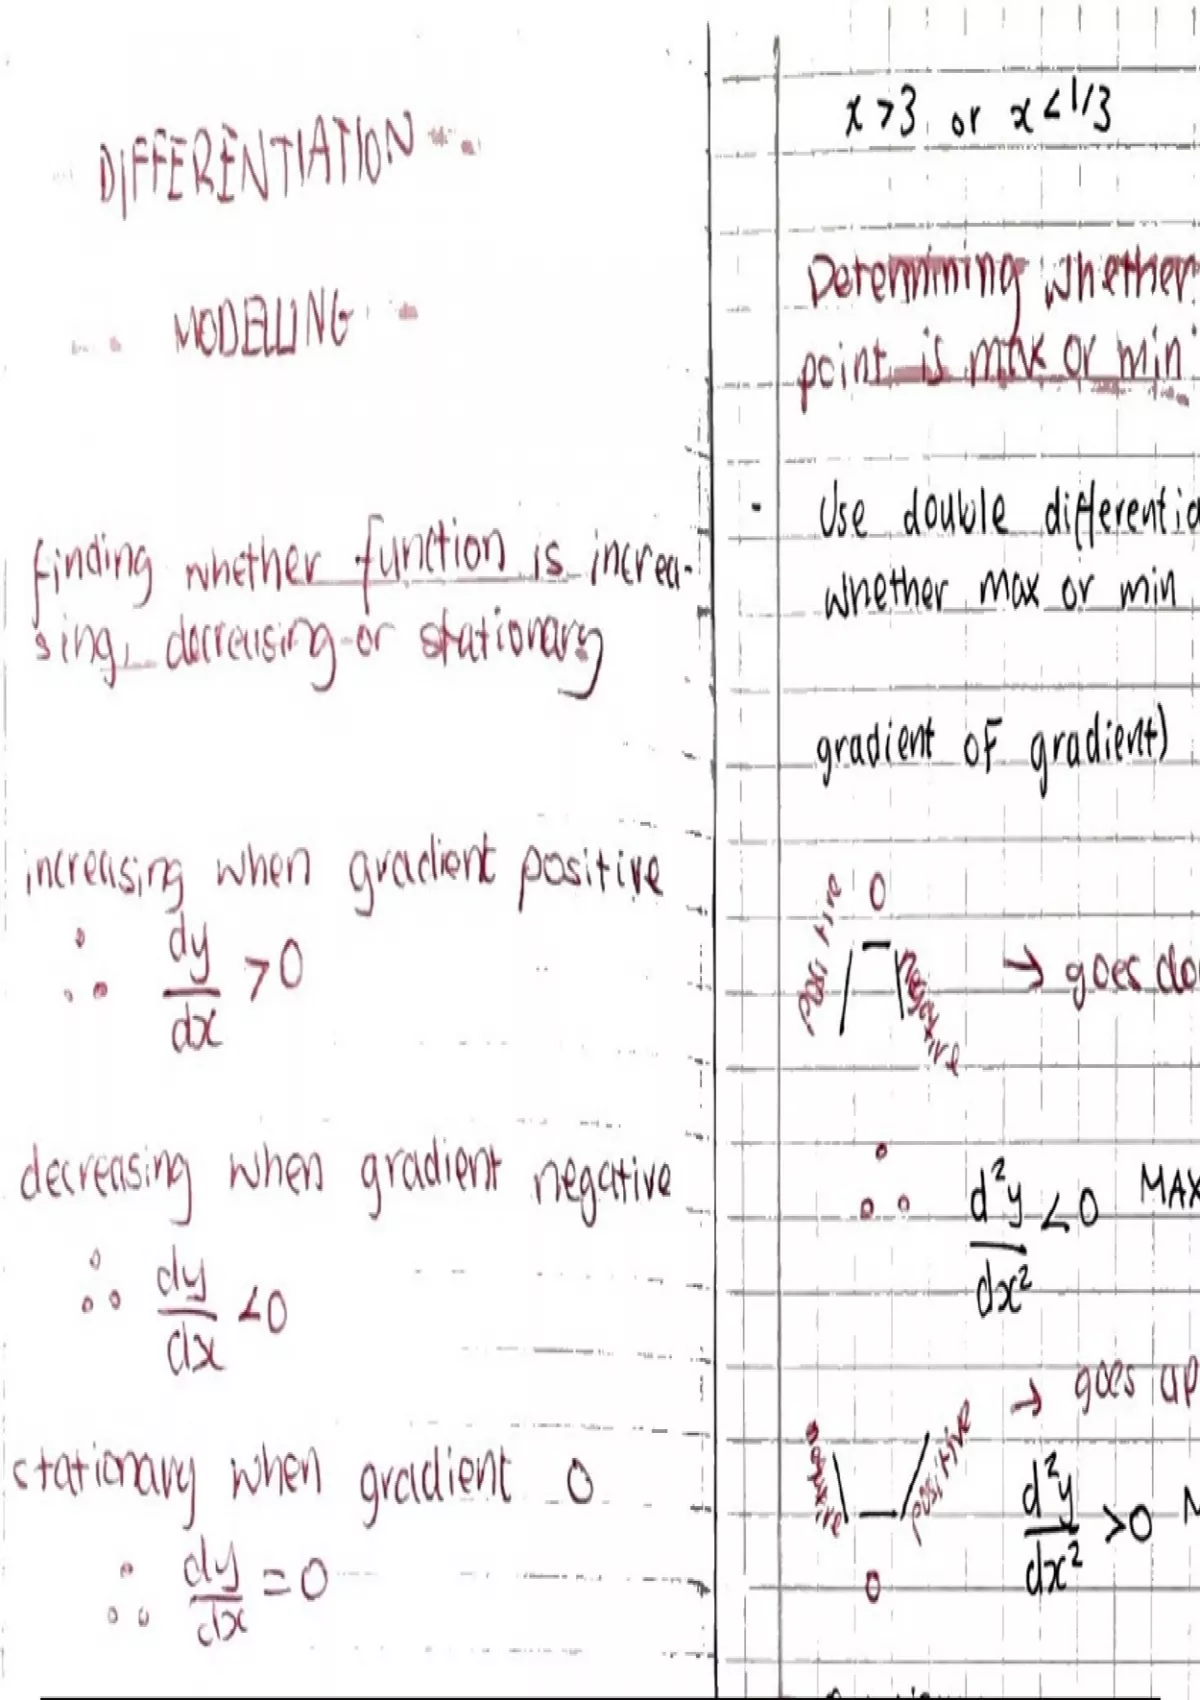 DIFFERENTIATION
MODELLING
finding whether function is increa-
sing, decreasing or stationary
increasing when gradient positive
∴ dy/dx >0
decreasing when gradient negative
∴ dy/dx <0
stationary when gradient 0
∴ dy/dx = 0
x>3 or x<1/3
Determining whether
point is max or min
Use double differentia
whether max or min
gradient of gradient)
positive 0 negative → goes do
∴ d²y/dx² <0 MAX
→ goes up
negative 0 positive
d²y/dx² >0